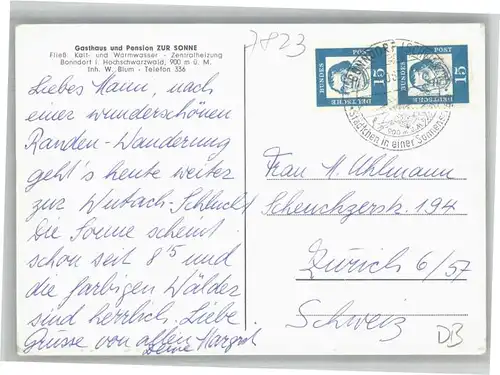 Gasthaus und Pension ZUR SONNE
Fließ. Kalt- und Warmwasser - Zentralheizung
Bonndorf i. Hochschwarzwald, 900 m ü. M.
Inh. W. Blum - Telefon 336
7823
Liebes Hann, nach
einer wunderschönen
Randen-Wanderung
geht's heute weiter
zur Wutach-Schlucht
Die Sonne scheint
schon seit 8'5 und
die farbigen Wälder
sind herrlich. Liebe
Grüsse von allen
Deine Margrit
BONNDORF
Städtchen in einer Sonnens
DEUTSCHE BUNDES POST 15
DEUTSCHE BUNDES POST 15
Frau M. Uhlmann
Scheuchzerstr. 194
Zürich 6/57
Schweiz
DB